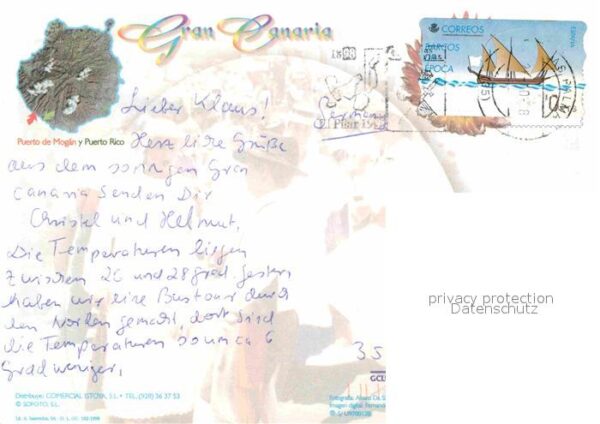 Gran Canaria
CORREOS
BARCOS
EPOCA
ESPAÑA
Puerto de Mogán y Puerto Rico
Lieber Klaus!
Herzliche Grüße
aus dem sonnigen Gran
Canaria Senden Dir
Christel und Helmut,
Die Temperaturen liegen
Zwischen 26 und 28 grad. gestern
haben wir eine Bustour durch
den Norden gemacht, dort sind
die Temperaturen so um ca 6
Grad weniger,
privacy protection
Datenschutz
35
Distribuye: COMERCIAL ISTOVA, S.L. • TEL. (928) 36 37 53
© SOFOTO, S.L.